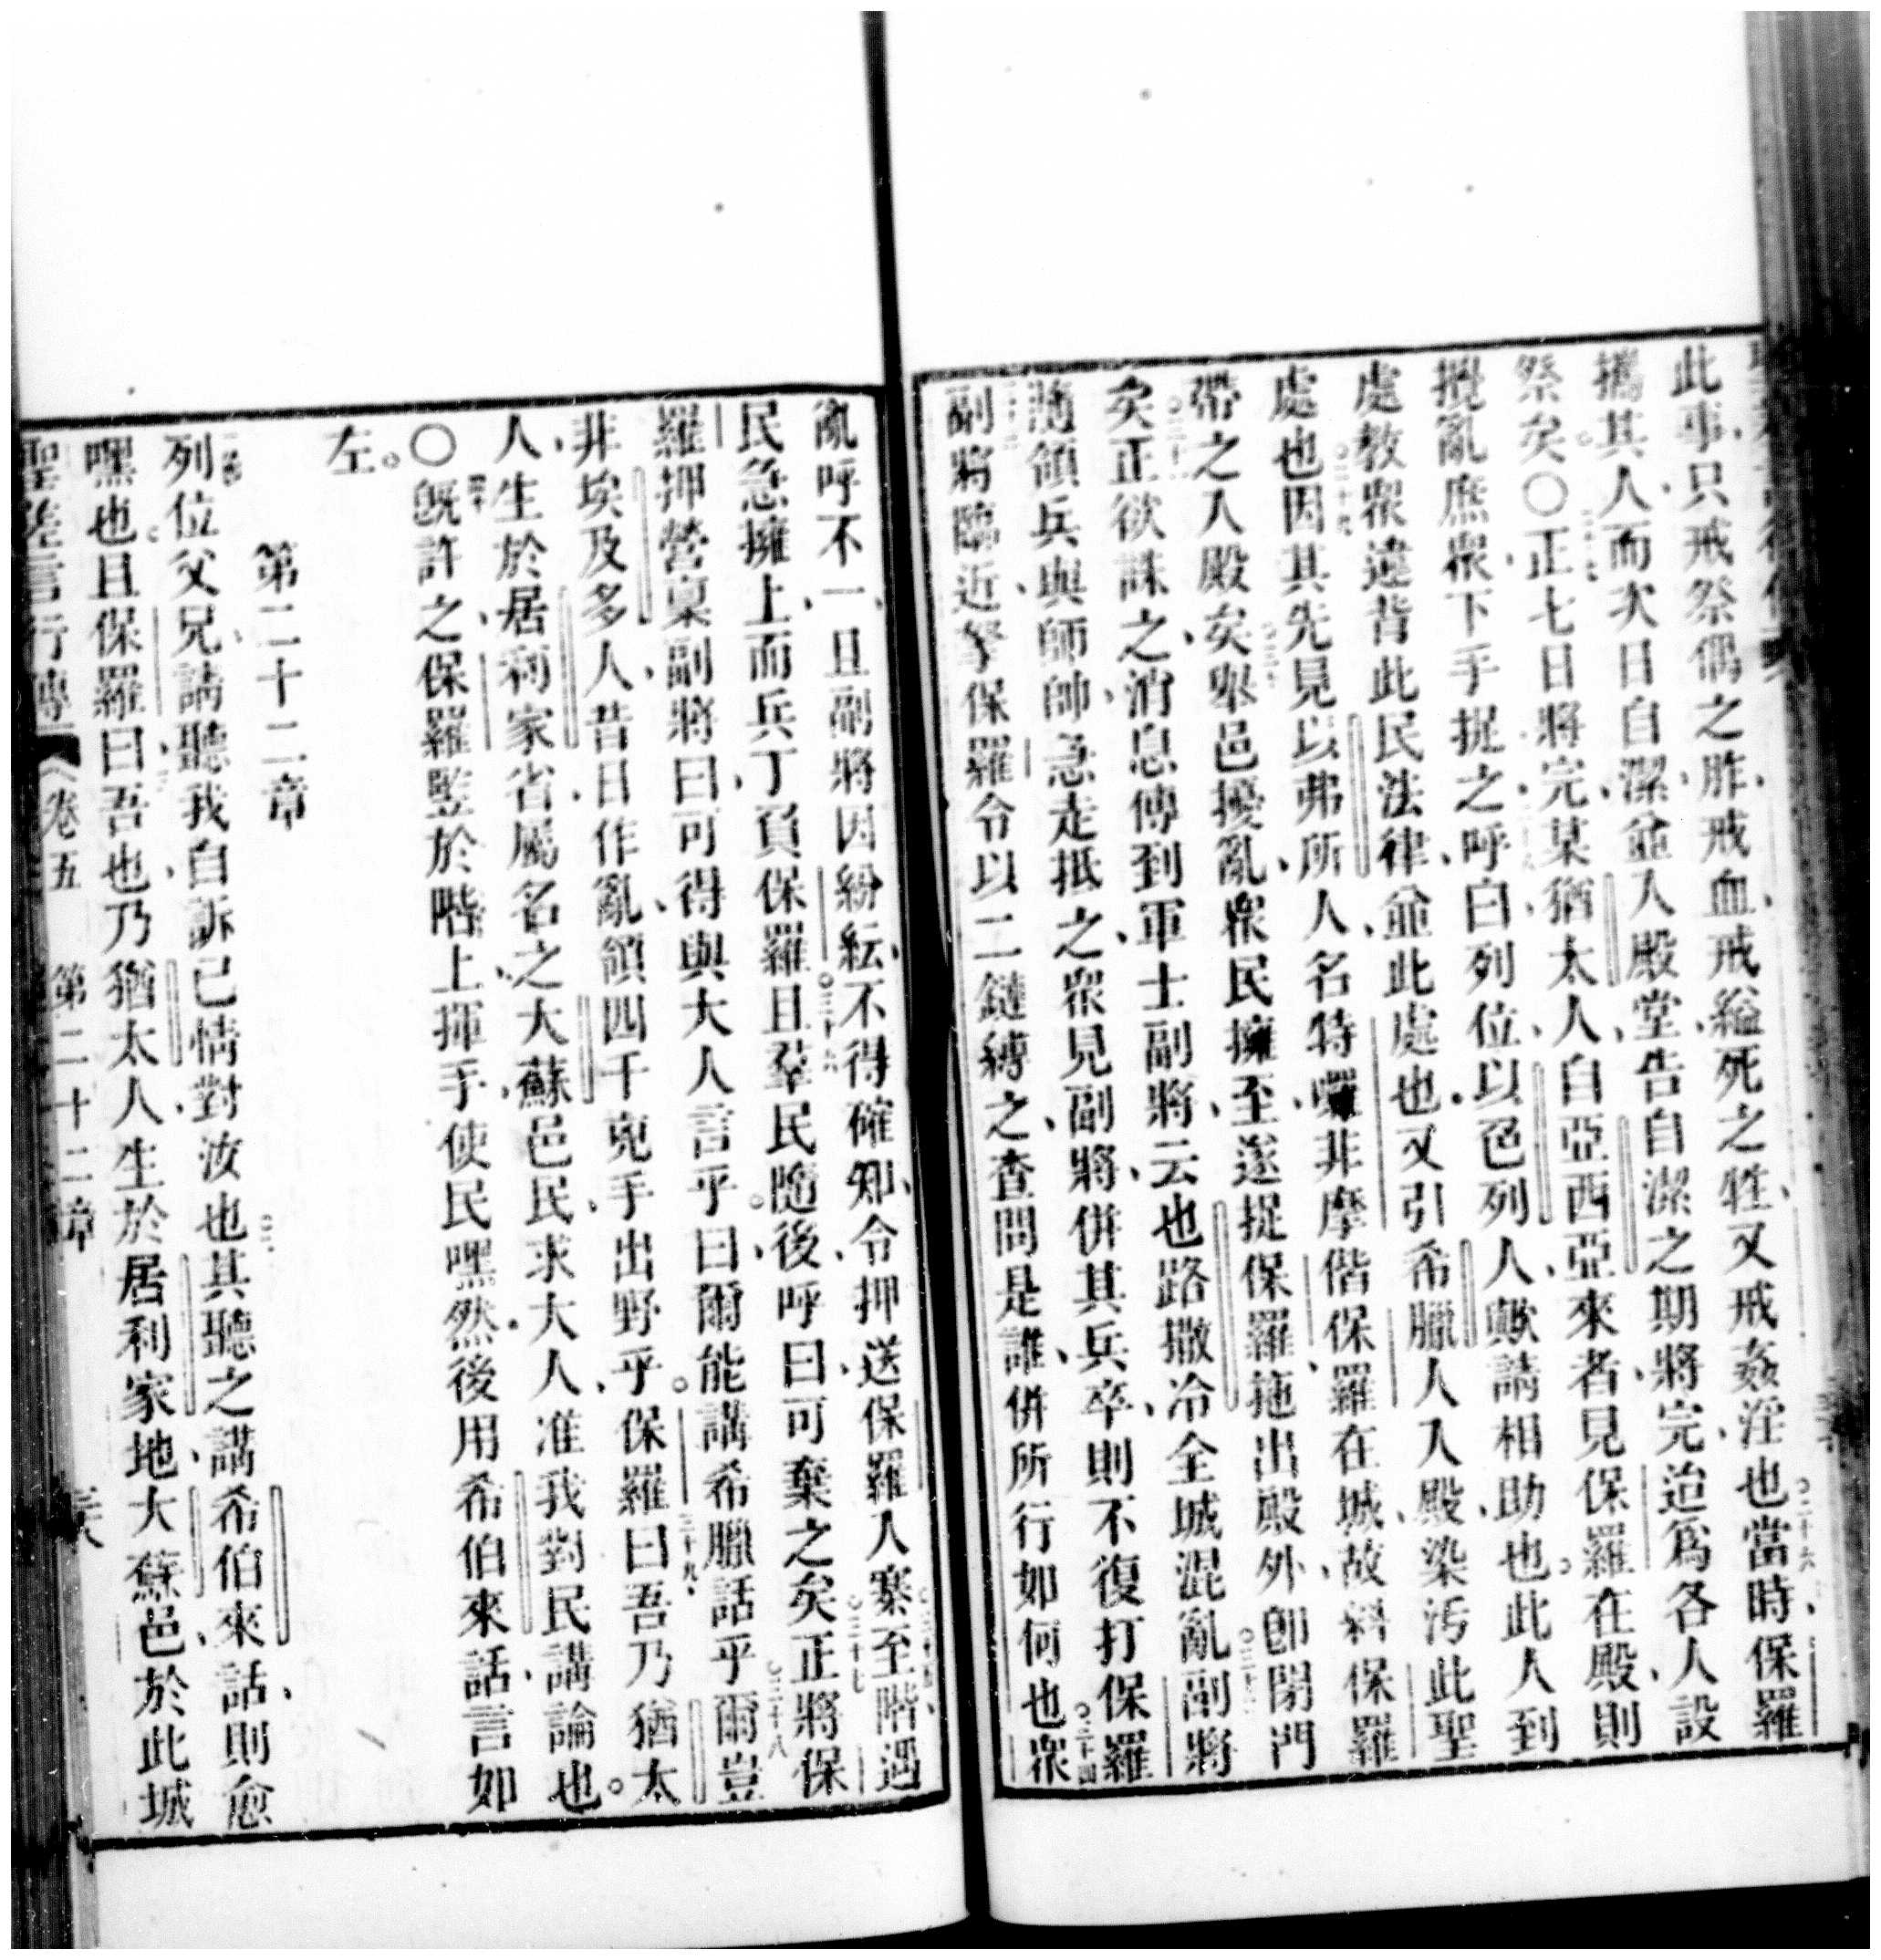 此事、只戒祭偶之胙、戒血、戒縊死之牲、又戒姦淫也。二十六當時、保羅
攜其人、而次日自潔、並入殿堂、告自潔之期將完、迨爲各人設
祭矣。○二十七正七日將完、某猶太人、自亞西亞來者、見保羅在殿、則
攪亂庶眾、下手捉之、二十八呼曰、列位以色列人、歟請相助也。此人到
處教眾違背此民法律、並此處也、又引希臘人入殿、染污此聖
處也。二十九因其先見以弗所人名特囉非摩、偕保羅在城、故料保羅
帶之入殿矣。三十舉邑擾亂、眾民擁至、遂捉保羅、拖出殿外、卽閉門
矣。三十一正欲誅之、消息傳到軍士副將、云也路撒冷全城混亂。三十二副將
隨領兵與師帥、急走抵之、眾見副將、併其兵卒、則不復打保羅
三十三副將臨近、拏保羅、令以二鏈縛之、查問是誰、併所行如何也。三十四眾
亂呼不一、且副將因紛紜、不得確知、令押送保羅入寨。三十五至階、遇
民急擁上、而兵丁負保羅。三十六且羣民隨後、呼曰、可棄之矣。三十七正將保
羅押營稟副將曰、可得與大人言乎。曰、爾能講希臘話乎。三十八爾豈
非埃及多人、昔日作亂、領四千兇手出野乎。三十九保羅曰、吾乃猶太
人、生於居利家省、屬名之大蘇邑民、求大人、准我對民講論也。
○四十旣許之、保羅竪於階上、揮手使民嘿然、後用希伯來話、言如
左。
第二十二章
一節列位父兄、請聽我自訴己情對汝也。二其聽之講希伯來話、則愈
嘿也。且保羅曰、三吾也、乃猶太人、生於居利家地、大蘇邑、於此城
聖差言行傳 卷五 第二十二章